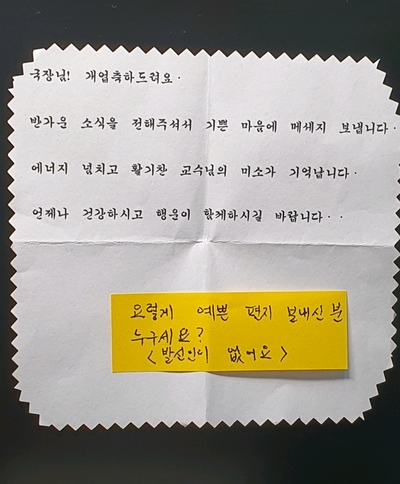 국장님! 개업축하드려요.
반가운 소식을 전해주셔서 기쁜 마음에 메세지 보냅니다.
에너지 넘치고 활기찬 교수님의 미소가 기억납니다.
언제나 건강하시고 행운이 함께하시길 바랍니다..
요렇게 예쁜 편지 보내신분
누구세요?
<발신인이 없어요>